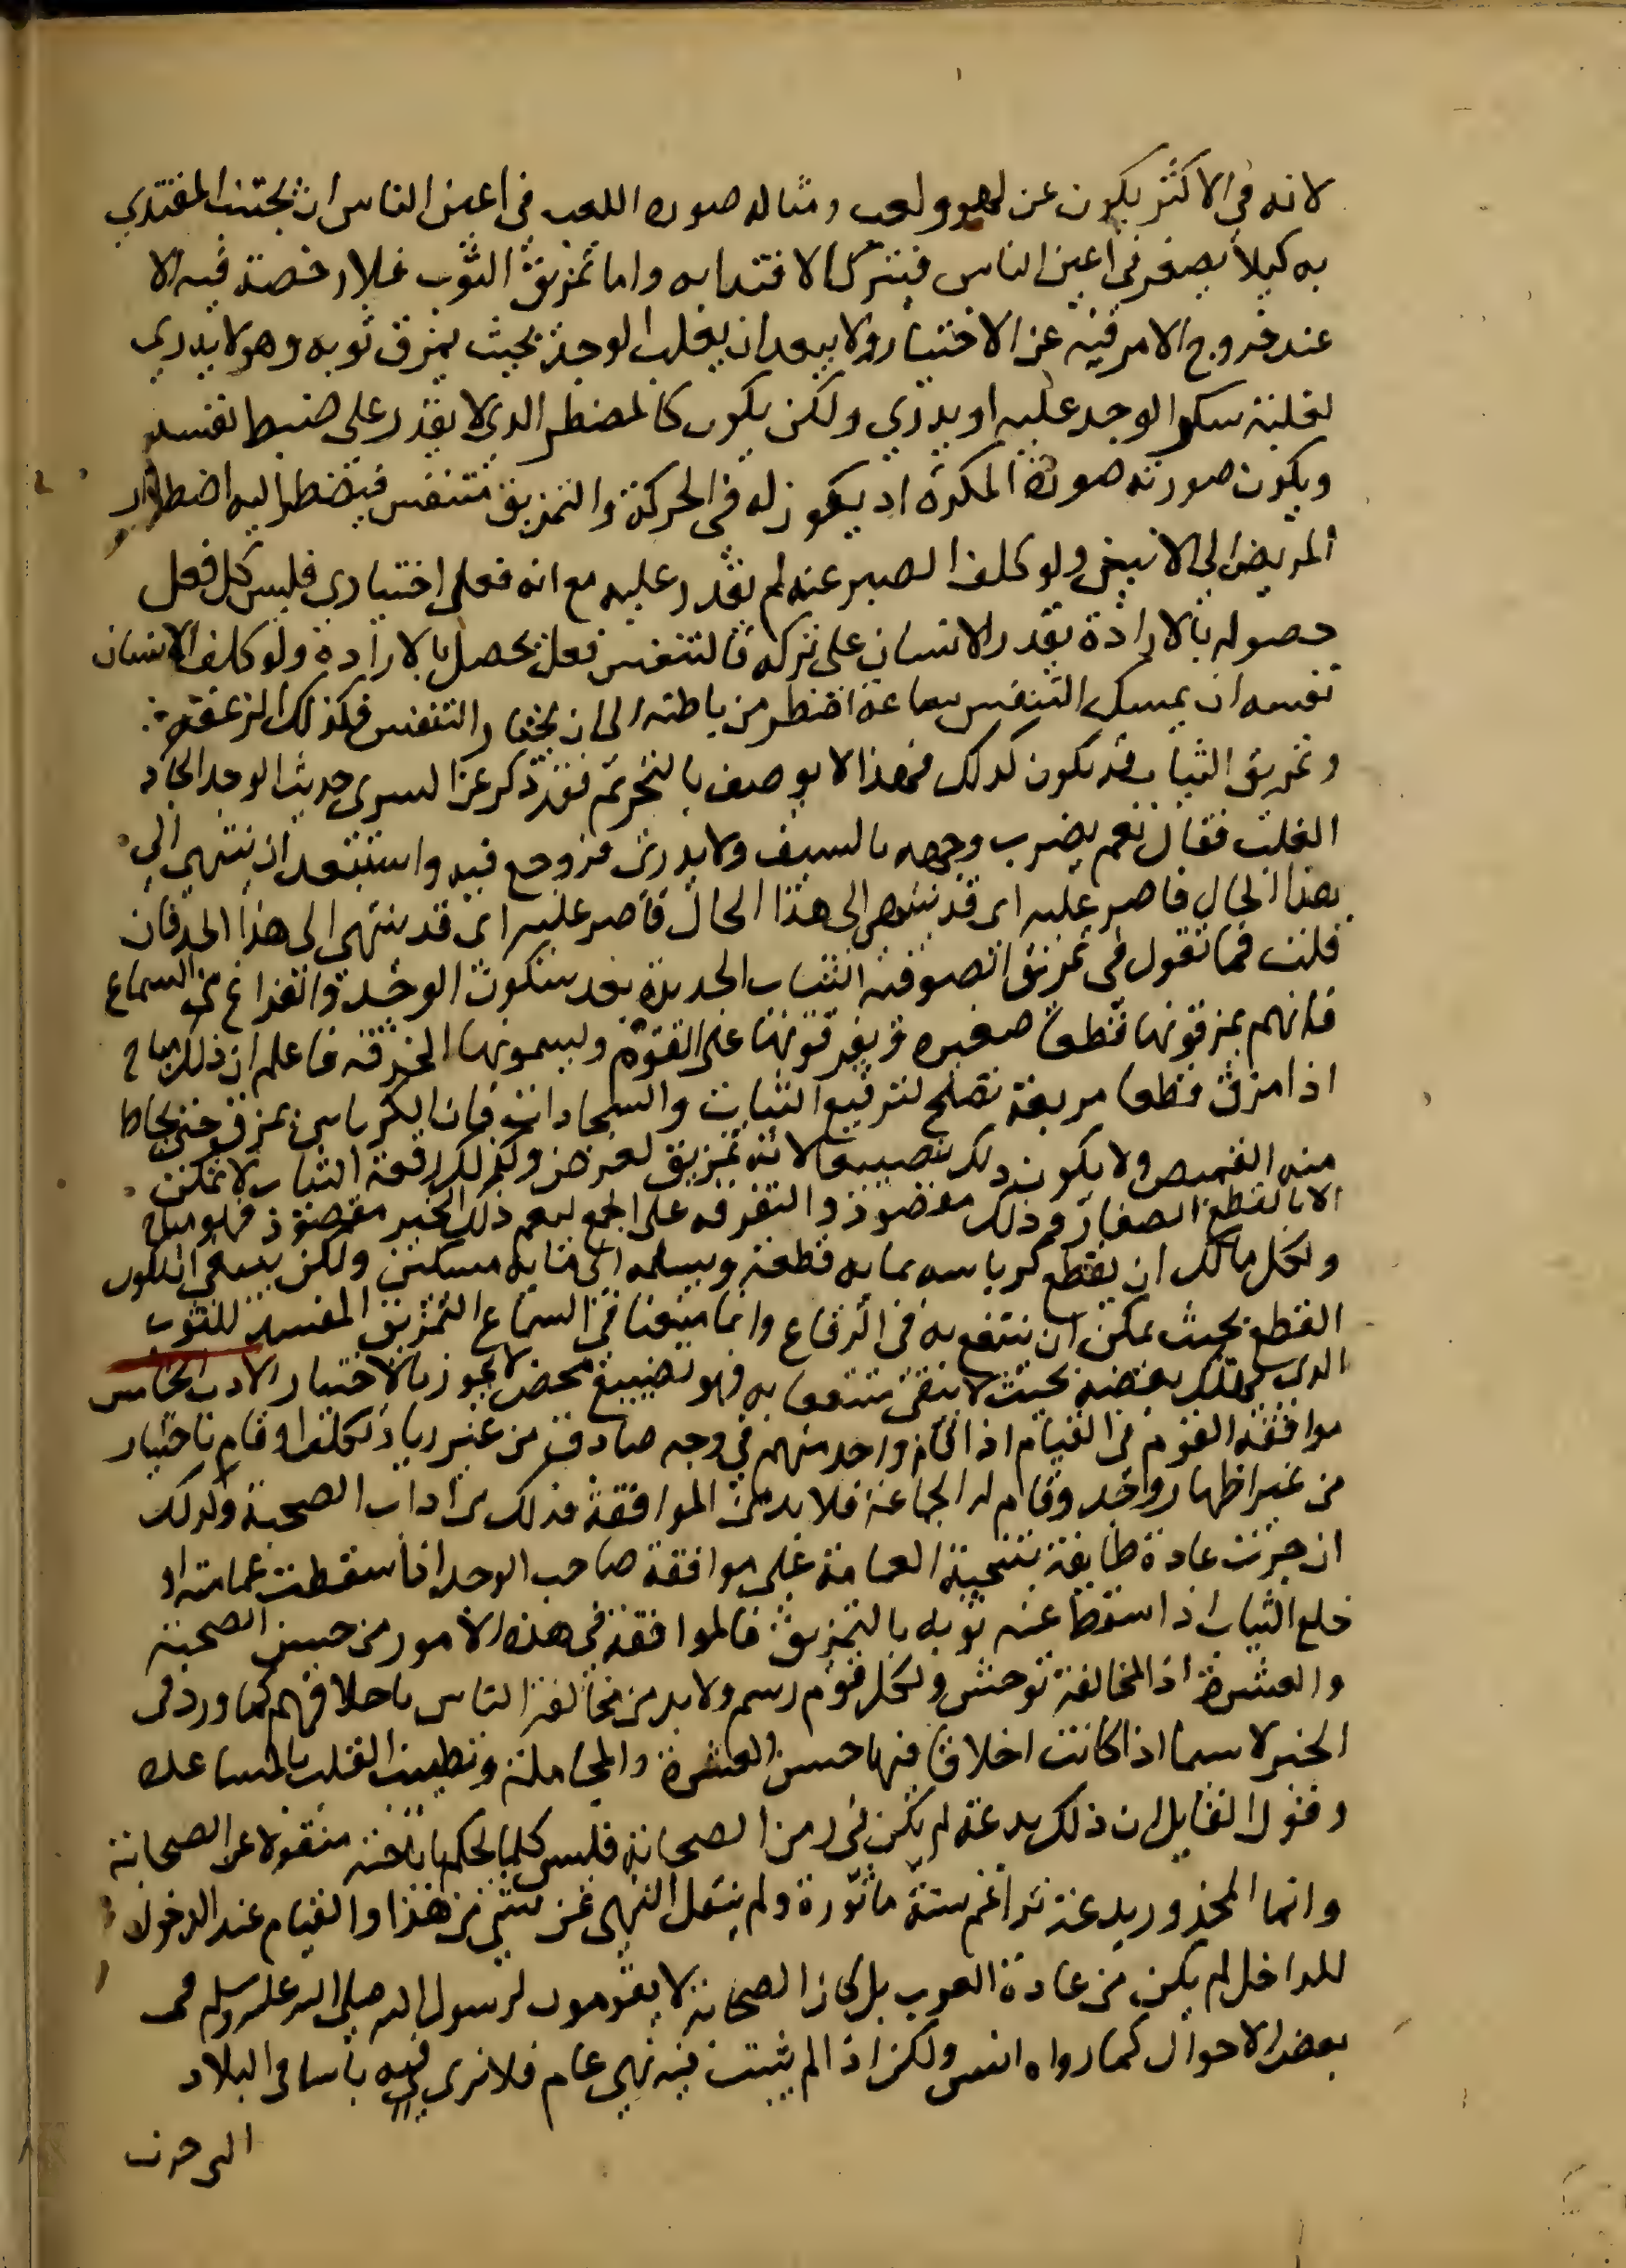 لانه في الاكثر يكون عن لهو ولعب وماله صوره اللعب في اعين الناس ان يجتنب المقتدي
به كيلا يصغر في اعين الناس فيترك الاقتدا به واما تمزيق الثوب فلا رخصة فيه الا
عند خروج الامر فيه عن الاختيار ولا يبعد ان يغلب الوجد بحيث يمزق ثوبه وهو لا يدري
لغلبة سكر الوجد عليه او يدري ولكن يكون كالمضطر الذي لا يقدر على ضبط نفسه
ويكون صورته صورة المكره اذ يكون له في الحركة والتمزيق متنفس فيضطر اليه اضطرار
المريض الى الانين ولو كلف الصبر عنه لم يقدر عليه مع انه فعل اختياري فليس كل فعل
حصوله بالارادة يقدر الانسان على تركه فالتنفس فعل يحصل بالارادة ولو كلف الانسان
نفسه ان يمسك التنفس ساعة اضطر من باطنه الى ان يختار التنفس فكذلك الزعقة
وتمزيق الثياب قد يكون كذلك فهذا لا يوصف بالتحريم فقد ذكر عند السري حديث الوجد الحاد
الغالب فقال نعم يضرب وجهه بالسيف ولا يدري فروجع فيه واستبعد ان ينتهي الى
هذا الحال فاصر عليه اى قد ينتهي الى هذا الحال فاصر عليه اى قد ينتهي الى هذا الحد فان
قلت فما تقول في تمزيق الصوفية الثياب الجديدة بعد سكون الوجد والفراغ من السماع
فانهم يمزقونها قطعا صغيره ويفرقونها على القوم ويسمونها الخرقه فاعلم ان ذلك مباح
اذا مزق قطعا مربعة تصلح لترقيع الثياب والسجادات فان الكرباس يمزق حتى يخاط
منه القميص ولا يكون ذلك تضييعا لانه تمزيق لغرض وكذلك رقعة الثياب لا تمكن
الا بالقطع الصغار وذلك مقصود والتفرقه على الجمع ليعم ذلك الخير مقصود فهو مباح
ولكل مالك ان يقطع كرباسه بمايه قطعة ويسلمه الى مايه مسكين ولكن ينبغي ان يكون
القطع بحيث يمكن ان ينتفع به في الرقاع وانما منعنا في السماع التمزيق المفسد للثوب
الذي يهلك بعضه بحيث لا يبقى منتفعا به فهو تضييع محض لا يجوز بالاختيار الادب الخامس
موافقة القوم في القيام اذا قام واحد منهم في وجد صادق من غير رياء وتكلف او قام باختيار
من غير اظهار وجد وقام له الجماعة فلا بد من الموافقة فذلك من اداب الصحبة وكذلك
ان جرت عادة طايفة بتنحية العمامة على موافقة صاحب الوجد اذا سقطت عمامته او
خلع الثياب اذا سقط عنه ثوبه بالتمزيق فالموافقة في هذه الامور من حسن الصحبة
والعشرة اذ المخالفة توحش ولكل قوم رسم ولا بد من مخالقة الناس باخلاقهم كما ورد في
الخبر لا سيما اذا كانت اخلاقا فيها حسن العشرة والمجاملة وتطييب القلب بالمساعده
وقول القايل ان ذلك بدعة لم يكن في زمن الصحابة فليس كلما يحكم باباحته منقولا عن الصحابة
وانما المحذور بدعة تراغم سنة ماثورة ولم ينقل النهي عن شئ من هذا والقيام عند الدخول
للداخل لم يكن من عادة العرب بل كان الصحابة لا يقومون لرسول الله صلى الله عليه وسلم في
بعض الاحوال كما رواه انس ولكن اذا لم يثبت فيه نهي عام فلا نرى فيه باسا في البلاد
التي جرت